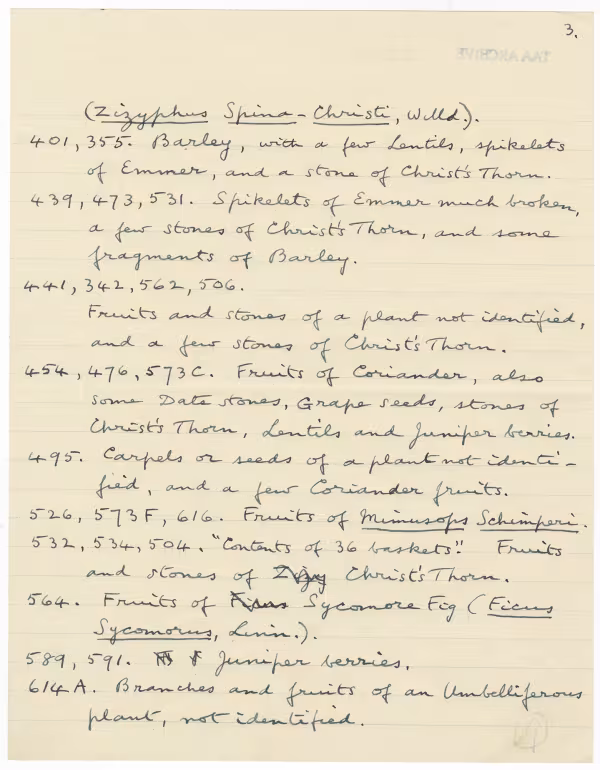 3.
TAA ARCHIVE
(Zizyphus Spina-Christi, Willd.).
401, 355. Barley, with a few Lentils, spikelets
of Emmer, and a stone of Christ's Thorn.
439, 473, 531. Spikelets of Emmer much broken,
a few stones of Christ's Thorn, and some
fragments of Barley.
441, 342, 562, 506.
Fruits and stones of a plant not identified,
and a few stones of Christ's Thorn.
454, 476, 573C. Fruits of Coriander, also
some Date stones, Grape seeds, stones of
Christ's Thorn, Lentils and Juniper berries.
495. Carpels or seeds of a plant not identi-
fied, and a few Coriander fruits.
526, 573F, 616. Fruits of Mimusops Schimperi.
532, 534, 504. "Contents of 36 baskets". Fruits
and stones of Zizy Christ's Thorn.
564. Fruits of Ficus Sycomore Fig (Ficus
Sycomorus, Linn.).
589, 591. Juniper berries.
614A. Branches and fruits of an Umbelliferous
plant, not identified.